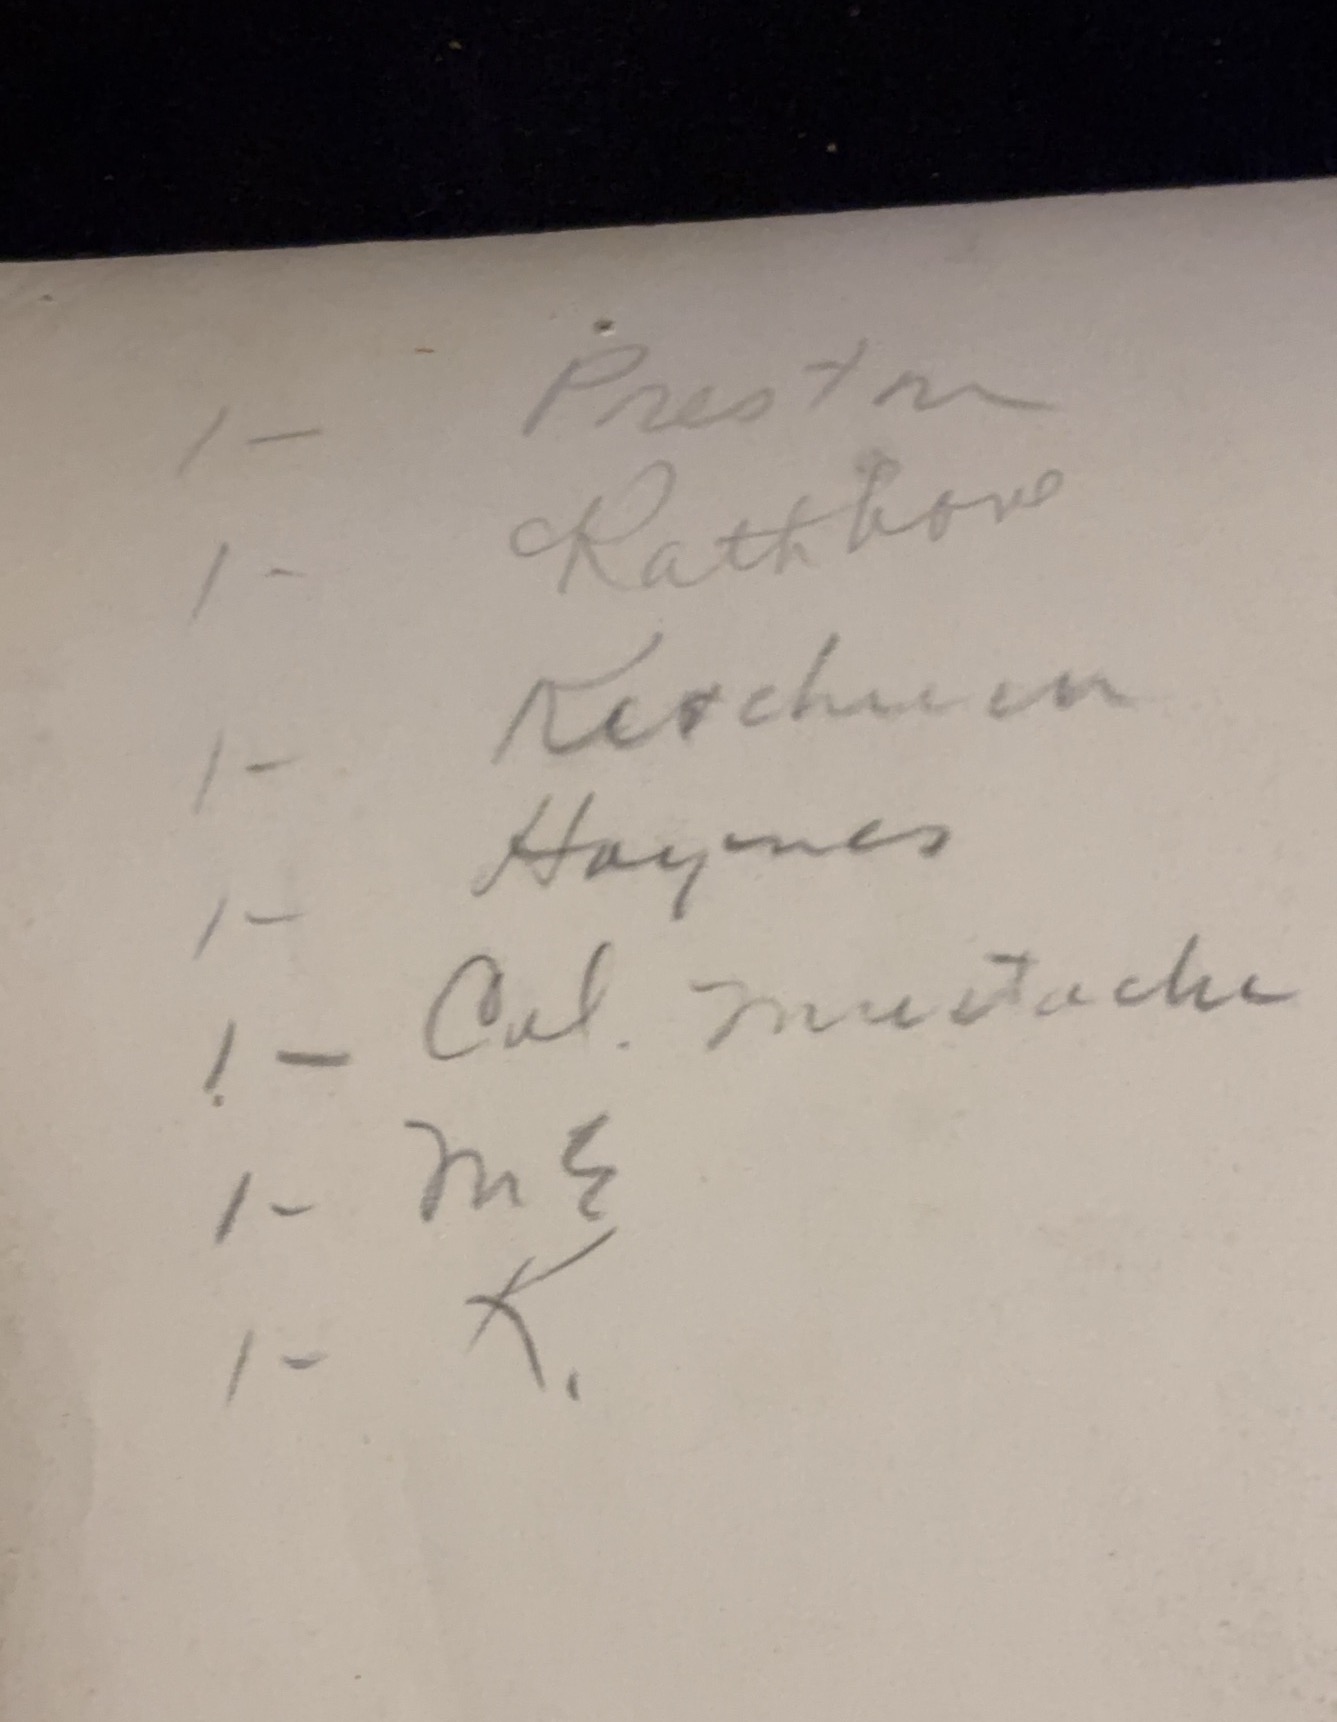 1- Preston
1- Rathbone
1- Ketchum
1- Haynes
1- Col. mustache
1- ME
1- K.